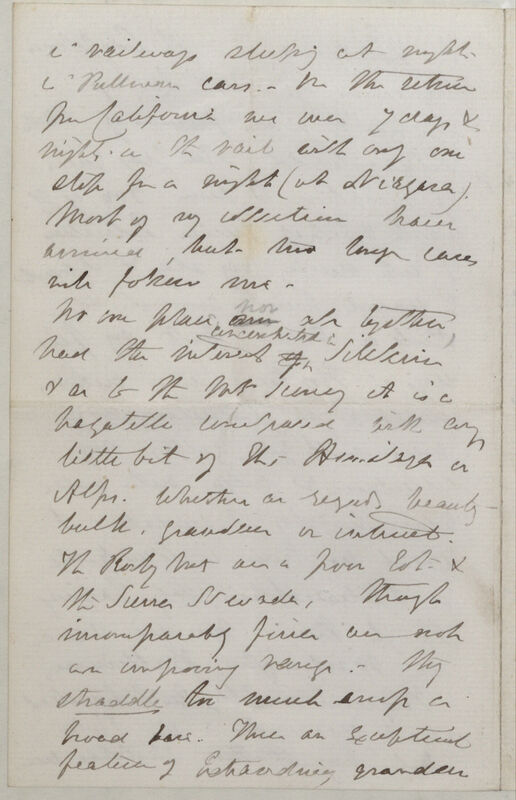 in railways sleeping at night
in Pullman cars. – On the return
from California we were 7 days &
nights on the rail with only one
stop for a night (at Niagara).
Most of my collections have
arrived, but two large cases
will follow me –
No one place, nor all together,
had the interest concentrated in Sikkim
& as to the Mt scenery it is a
bagatelle compared with any
little bit of the Himalaya or
Alps. Whether as regards beauty
bulk, grandeur or interest.
The Rocky Mts are a poor lot &
the Sierra Nevada, though
incomparably finer are not
an imposing range. – They
straddle too much over a
broad base. There are exceptional
features of Extraordinary grandeur